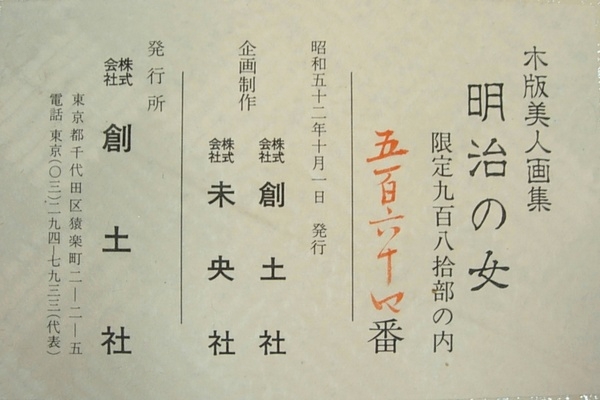 木版美人画集
明治の女
限定九百八拾部の内
五百六十四番
昭和五十二年十月一日 発行
企画制作
株式会社 創土社
株式会社 未央社
発行所
株式会社 創土社
東京都千代田区猿楽町二―二―五
電話 東京(〇三)二九四―七九三三(代表)